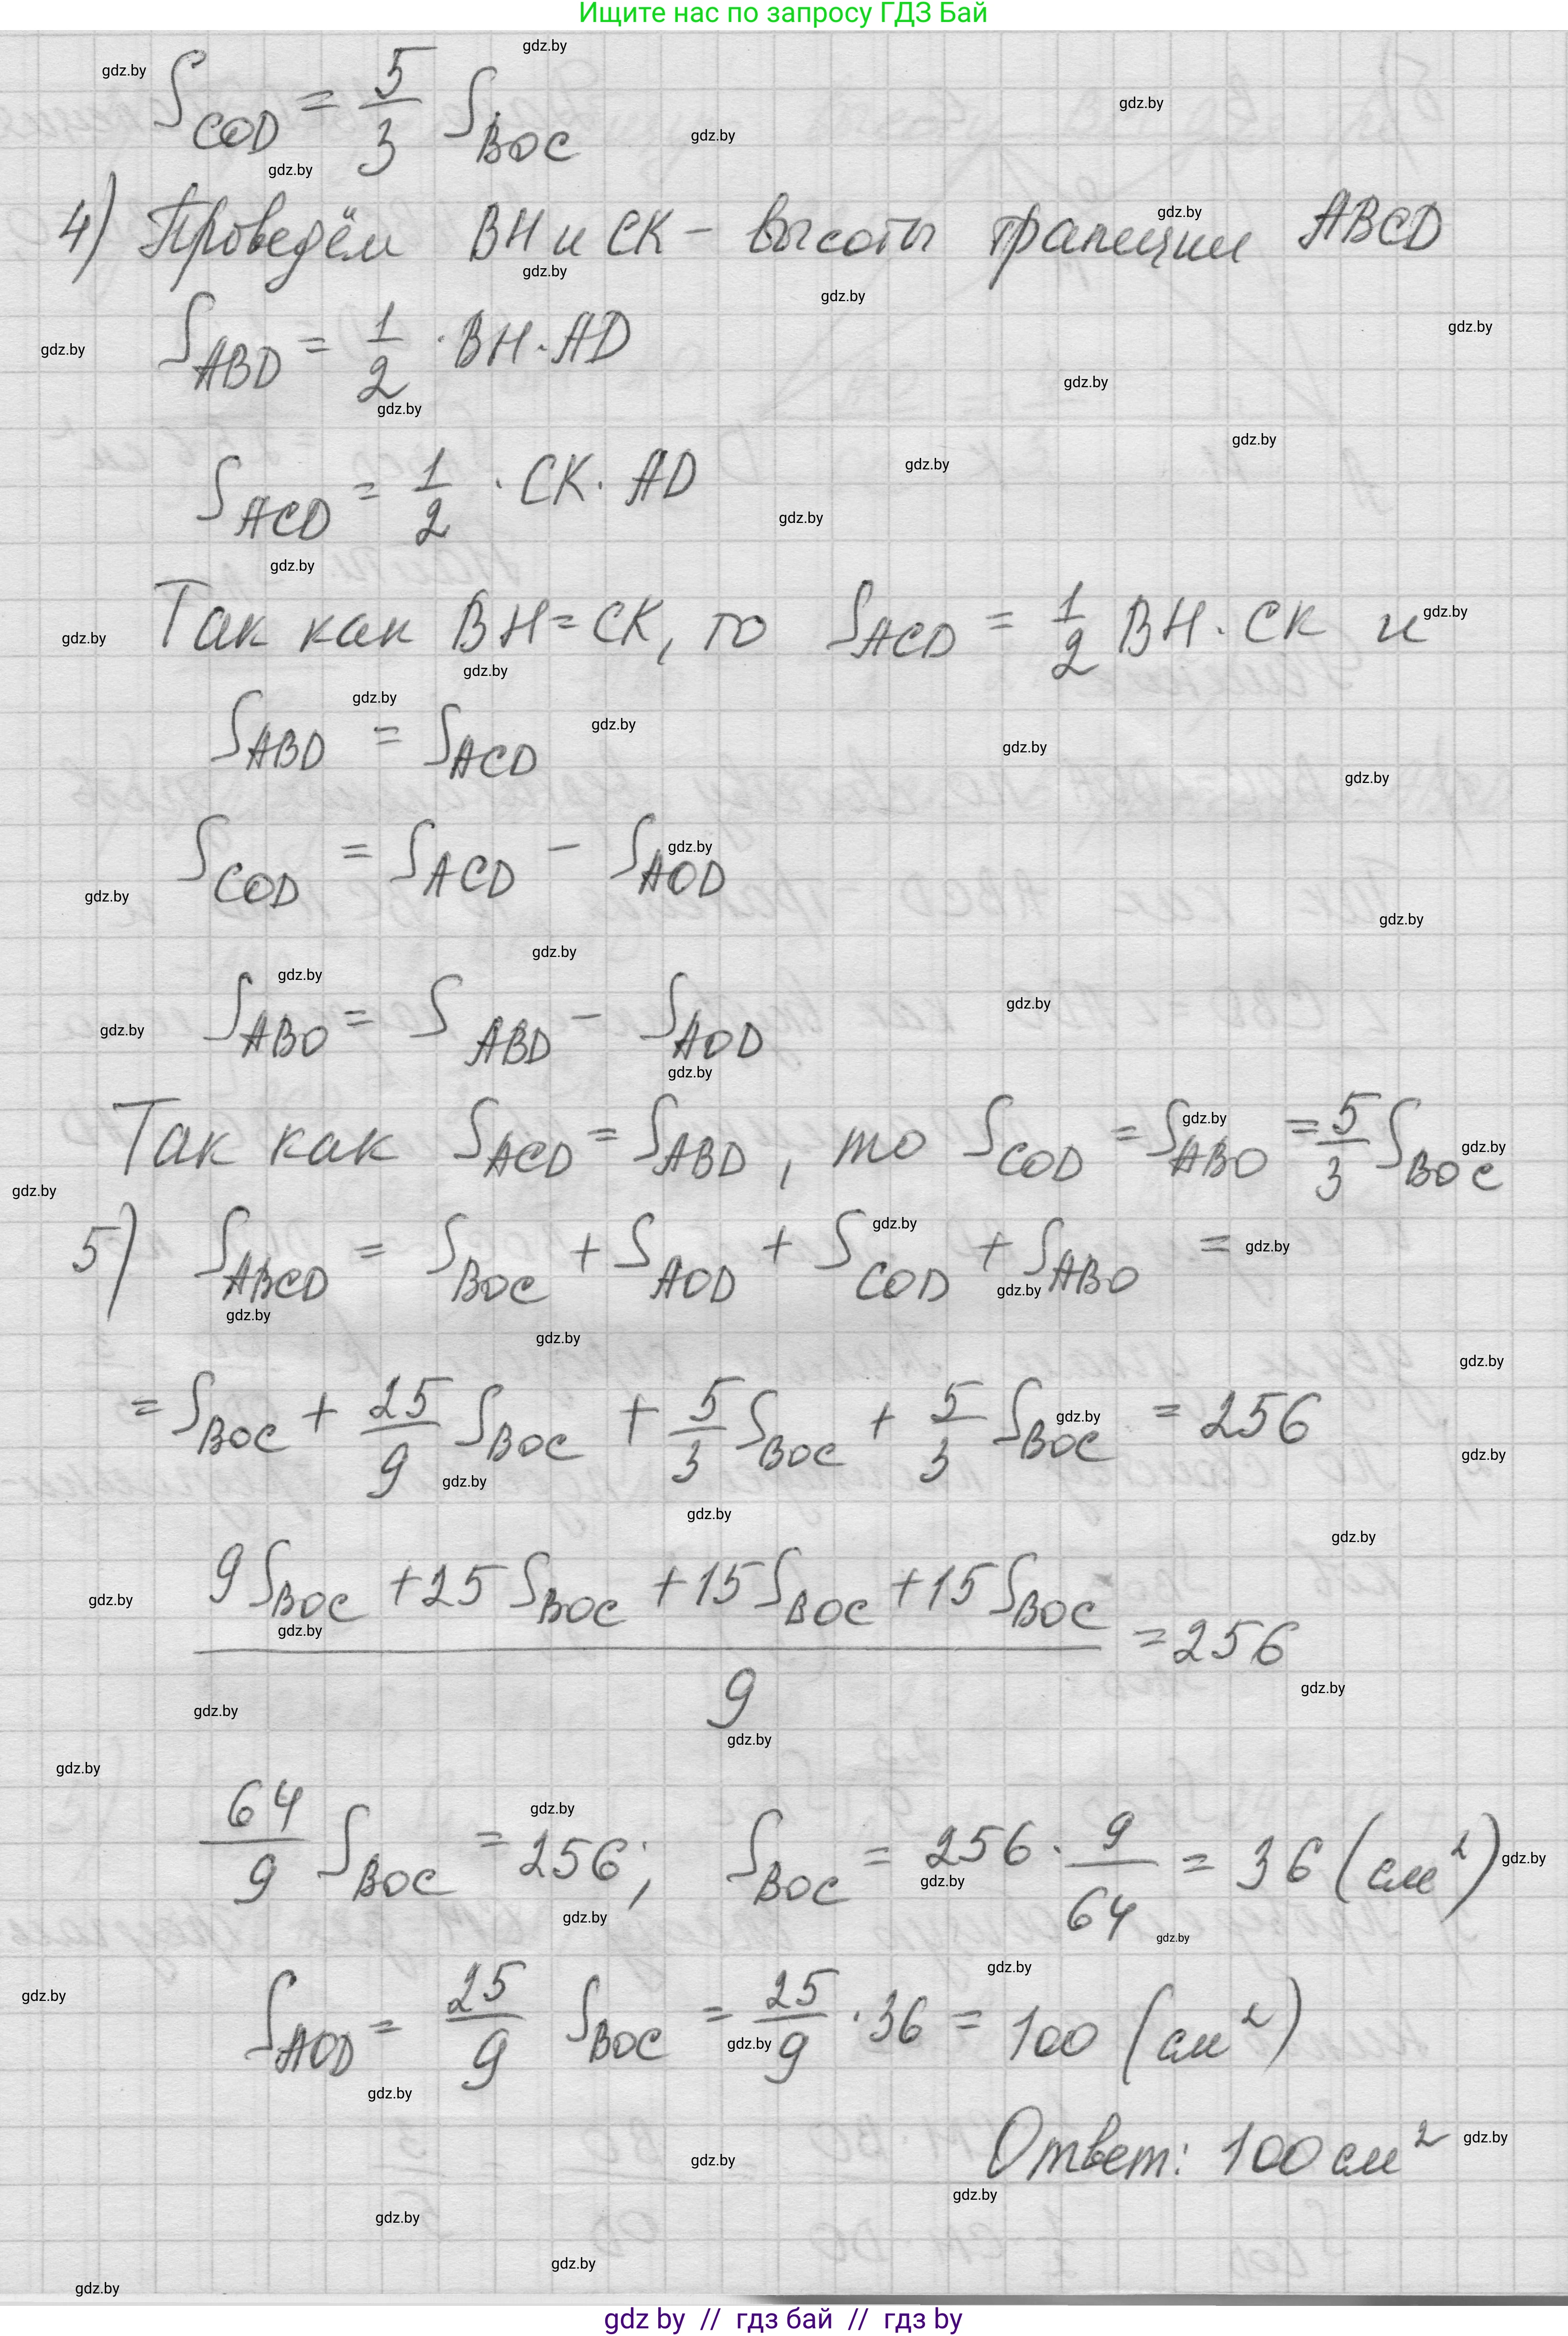 Ищите нас по запросу ГДЗ Бай
S_COD = 5/3 S_BOC
4) Проведём BH и CK - высоты трапеции ABCD
S_ABD = 1/2 · BH · AD
S_ACD = 1/2 · CK · AD
Так как BH = CK, то S_ACD = 1/2 BH · CK и
S_ABD = S_ACD
S_COD = S_ACD - S_AOD
S_ABO = S_ABD - S_AOD
Так как S_ACD = S_ABD, то S_COD = S_ABO = 5/3 S_BOC
5) S_ABCD = S_BOC + S_AOD + S_COD + S_ABO =
= S_BOC + 25/9 S_BOC + 5/3 S_BOC + 5/3 S_BOC = 256
(9 S_BOC + 25 S_BOC + 15 S_BOC + 15 S_BOC)/9 = 256
64/9 S_BOC = 256; S_BOC = 256 · 9/64 = 36 (см²)
S_AOD = 25/9 S_BOC = 25/9 · 36 = 100 (см²)
Ответ: 100 см²
gdz by // гдз бай // гдз by